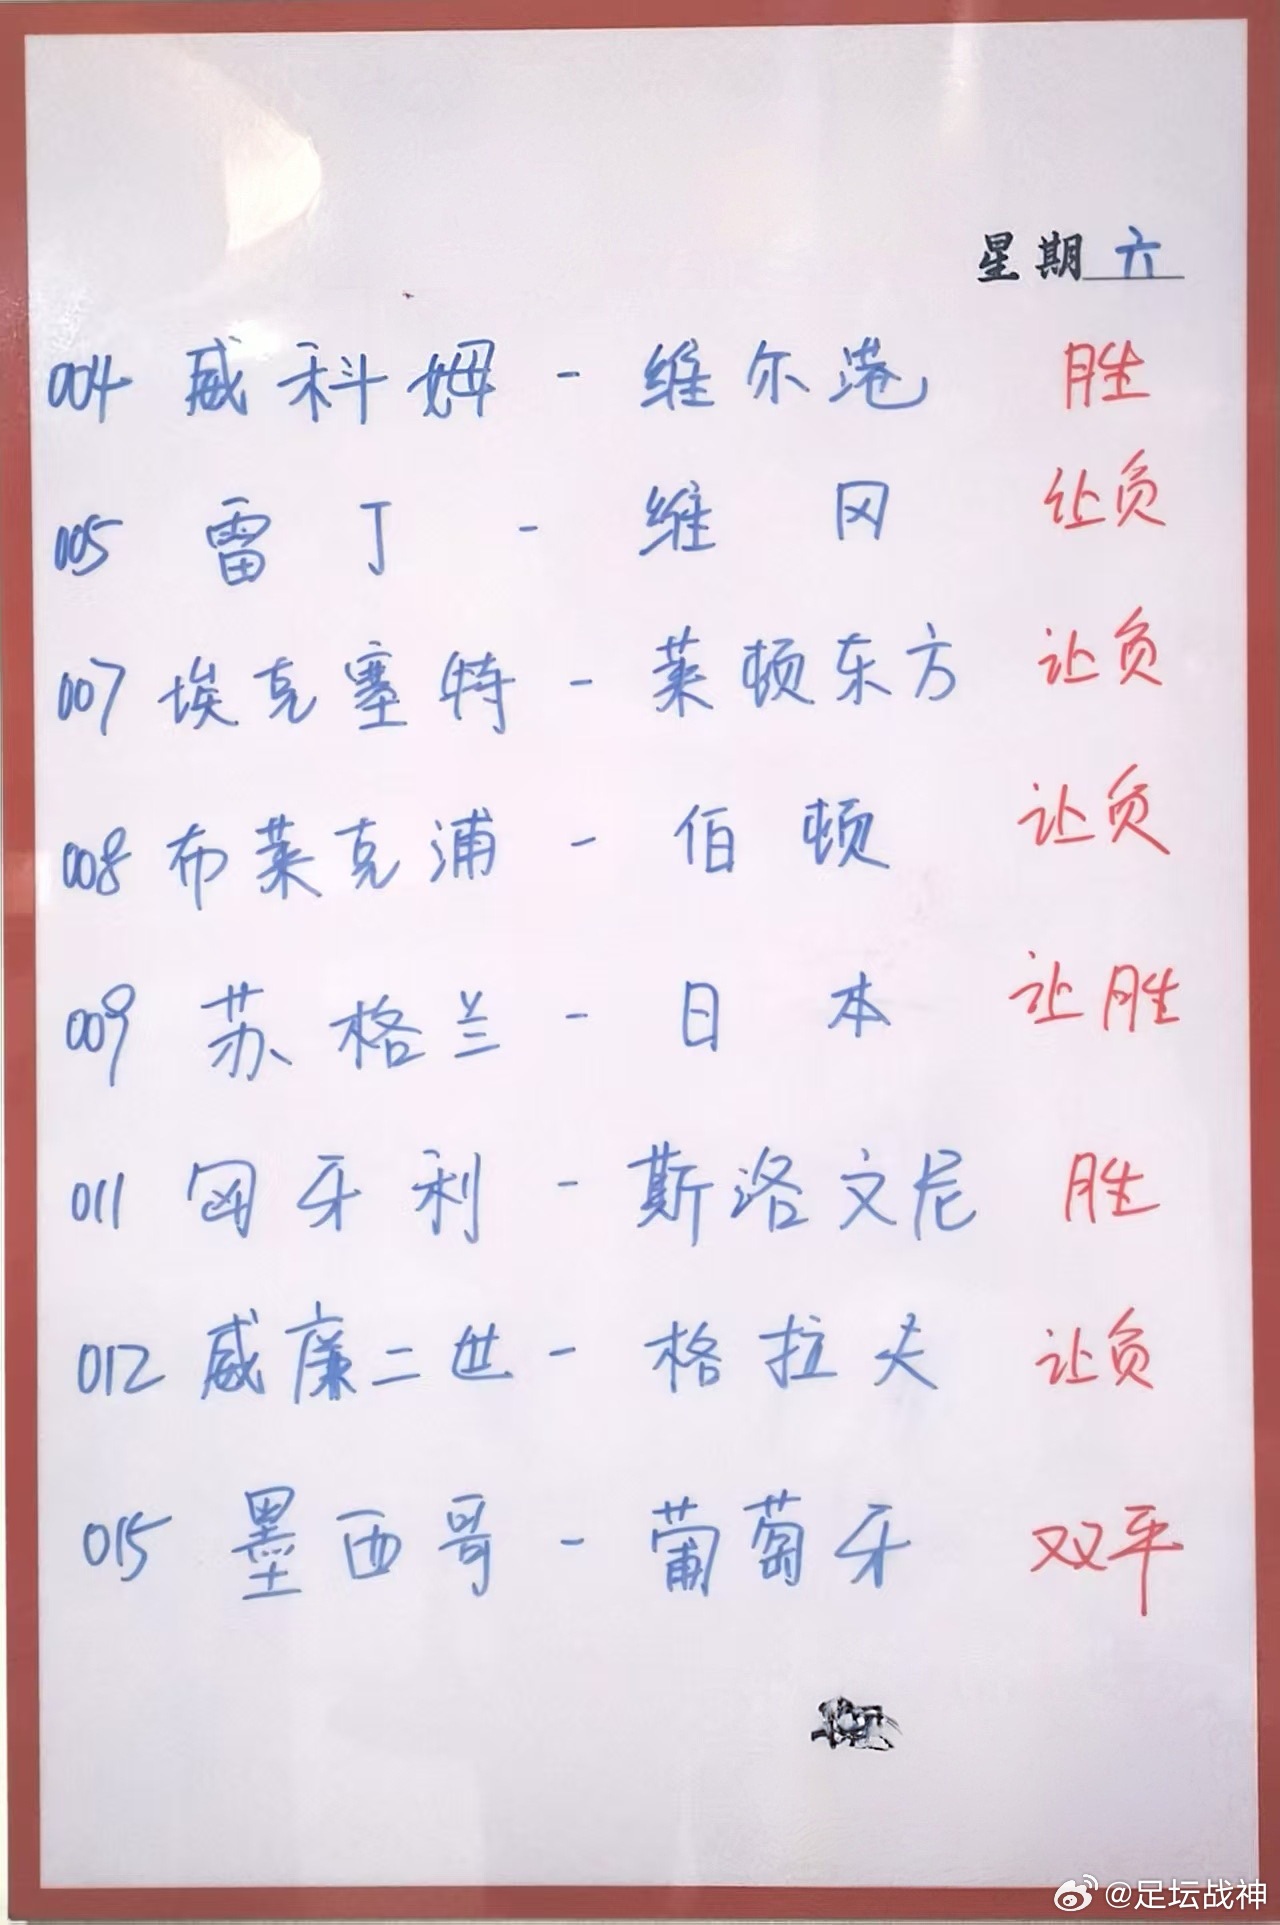 星期六
004 威科姆 - 维尔港 胜
005 雷丁 - 维冈 让负
007 埃克塞特 - 莱顿东方 让负
008 布莱克浦 - 伯顿 让负
009 苏格兰 - 日本 让胜
011 匈牙利 - 斯洛文尼 胜
012 威廉二世 - 格拉夫 让负
015 墨西哥 - 葡萄牙 双平
@足坛战神